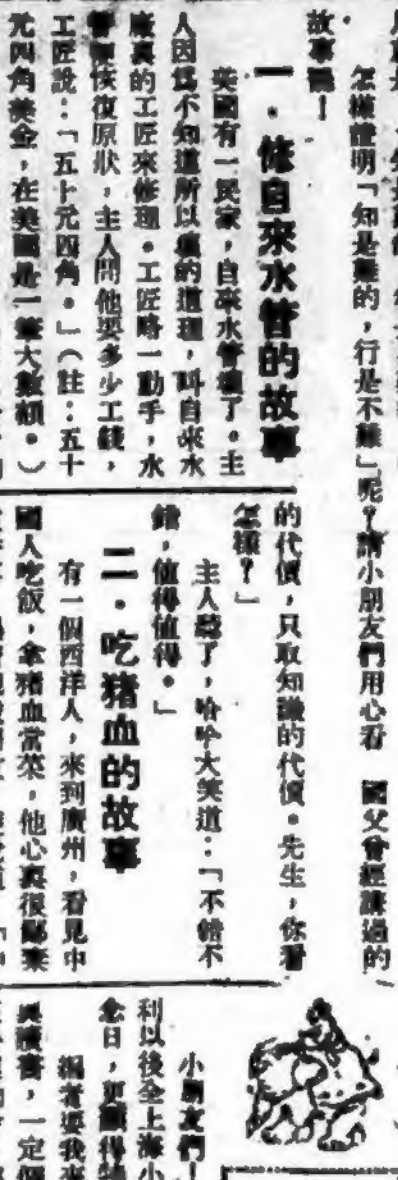 怎樣證明「知是難的，行是不難」呢？請小朋友們用心看　國父曾經講過的
故事罷！
一・修自來水管的故事
英國有一民家，自來水管壞了。主
人因爲不知道所以壞的道理，叫自來水
廠裏的工匠來修理。工匠略一動手，水
管便恢復原狀，主人問他要多少工錢，
工匠說：「五十元四角。」（註：五十
元四角美金，在美國是一筆大數額。）
的代價，只取知識的代價。先生，你看
怎樣？」
主人聽了，哈哈大笑道：「不錯不
錯，值得值得。」
二・吃豬血的故事
有一個西洋人，來到廣州，看見中
國人吃飯，拿豬血當菜，他心裏很鄙棄
小朋友們！
利以後全上海小
念日，更顯得
編者要我來
一定個